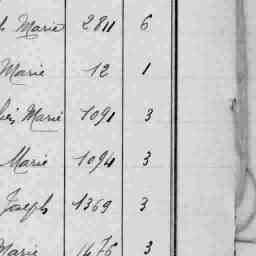 Marie 2811 6
Marie 12 1
Marie 1091 3
Marie 1094 3
Joseph 1369 3
Marie 1476 3